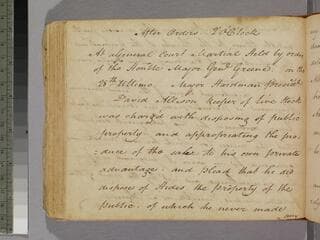 After Orders 2 OClock
At a General Court Martial Held by order
of the Honble Major Genl Greene on the
28th Ultimo Major Hardman President
David Allison keeper of live stock
was charged with disposing of public
property and appropriating the pro-
duce of the sales to his own private
advantage and plead that he did
dispose of Hides the property of the
public of which he never made
any